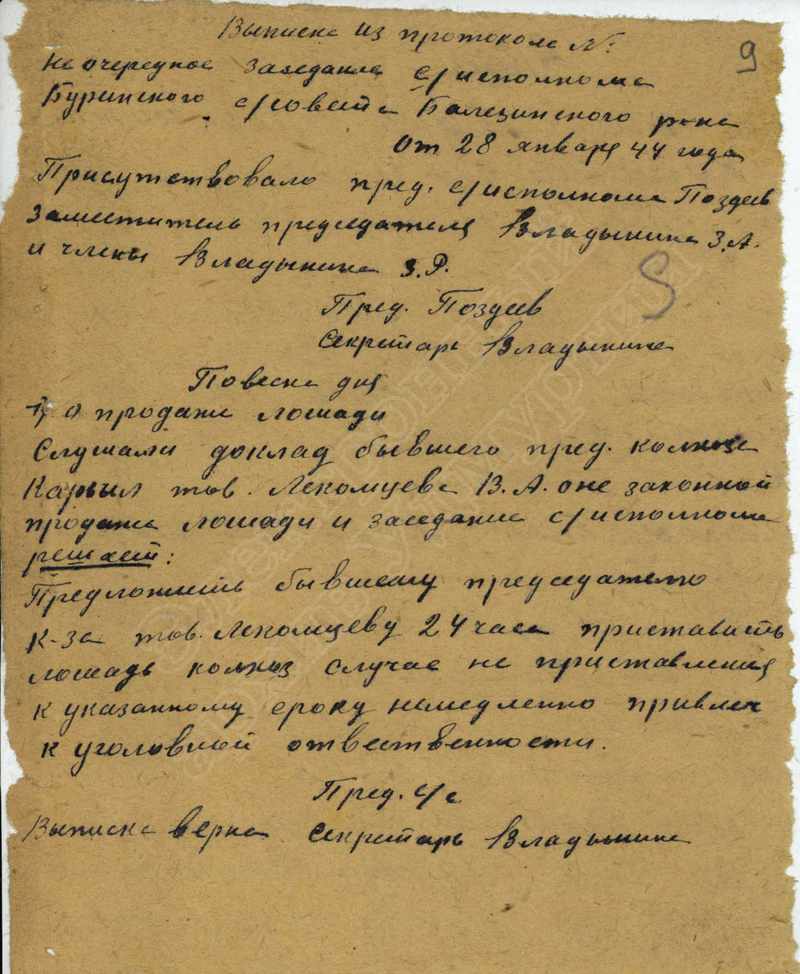 9
Выписка из протокола №
не очередное заседание с/исполкома
Буринского с/совета Балезинского р-на
От 28 января 44 года
Присутствовало пред. с/исполкома Поздеев
Заместитель председателя Владыкина З.А.
и члены Владыкина З.Р.
Пред. Поздеев
Секретарь Владыкина
Повеска дня
1) о продажи лошади
Слушали доклад бывшего пред. колхоза
Карвыл тов. Лекомцева В.А. оне законной
продажа лошади и заседание с/исполкома
решает:
Предложить бывшему председателю
К-за тов. Лекомцеву 24 часа приставить
лошадь колхоз случае не приставления
к указанному сроку немедленно привлеч
к уголовной отвественности.
Пред. с/с
Выписка верна Секретарь Владыкина